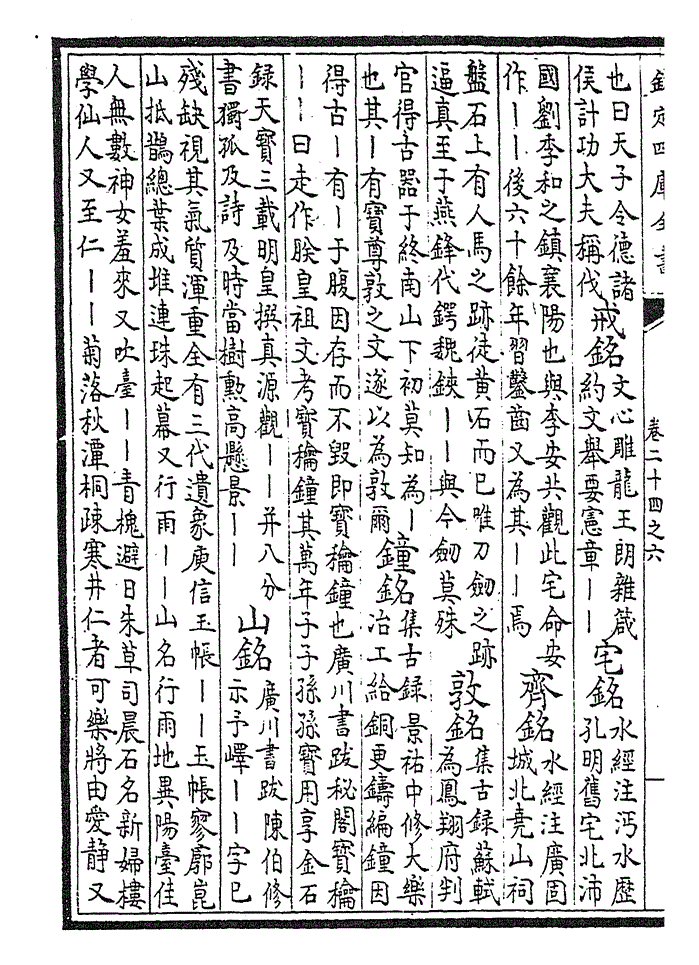 欽定四庫全書
卷二十四之六
也曰天子令德諸
侯計功大夫稱伐
戒銘
文心雕龍王朗雜箴
約文舉要憲章丨丨
宅銘
水經注沔水歷
孔明舊宅北沛
國劉季和之鎮襄陽也與李安共觀此宅命安
作丨丨後六十餘年習鑿齒又為其丨丨焉
齊銘
水經注廣固
城北堯山祠
盤石上有人馬之跡徒黄石而已唯刀劒之跡
逼真至于燕鋒代鍔魏鋏丨丨與今劒莫殊
敦銘
集古録蘇軾
為鳳翔府判
官得古器于終南山下初莫知為丨
也其丨有寳尊敦之文遂以為敦爾
鐘銘
集古録景祐中修大樂
冶工給銅更鑄編鐘因
得古丨有丨于腹因存而不毁即寳龢鐘也廣川書跋秘閣寳龢
丨丨曰走作朕皇祖文考寳龢鐘其萬年子子孫孫寳用享金石
録天寳三載明皇撰真源觀丨丨并八分
書獨孤及詩及時當樹勲高懸景丨丨
山銘
廣川書跋陳伯修
示予嶧丨丨字已
殘缺視其氣質渾重全有三代遺象庾信玉帳丨丨玉帳寥廓崑
山抵鵲總葉成堆連珠起幕又行雨丨丨山名行雨地異陽臺佳
人無數神女羞來又吹臺丨丨青槐避日朱草司晨石名新婦樓
學仙人又至仁丨丨菊落秋潭桐疎寒井仁者可樂將由愛静又